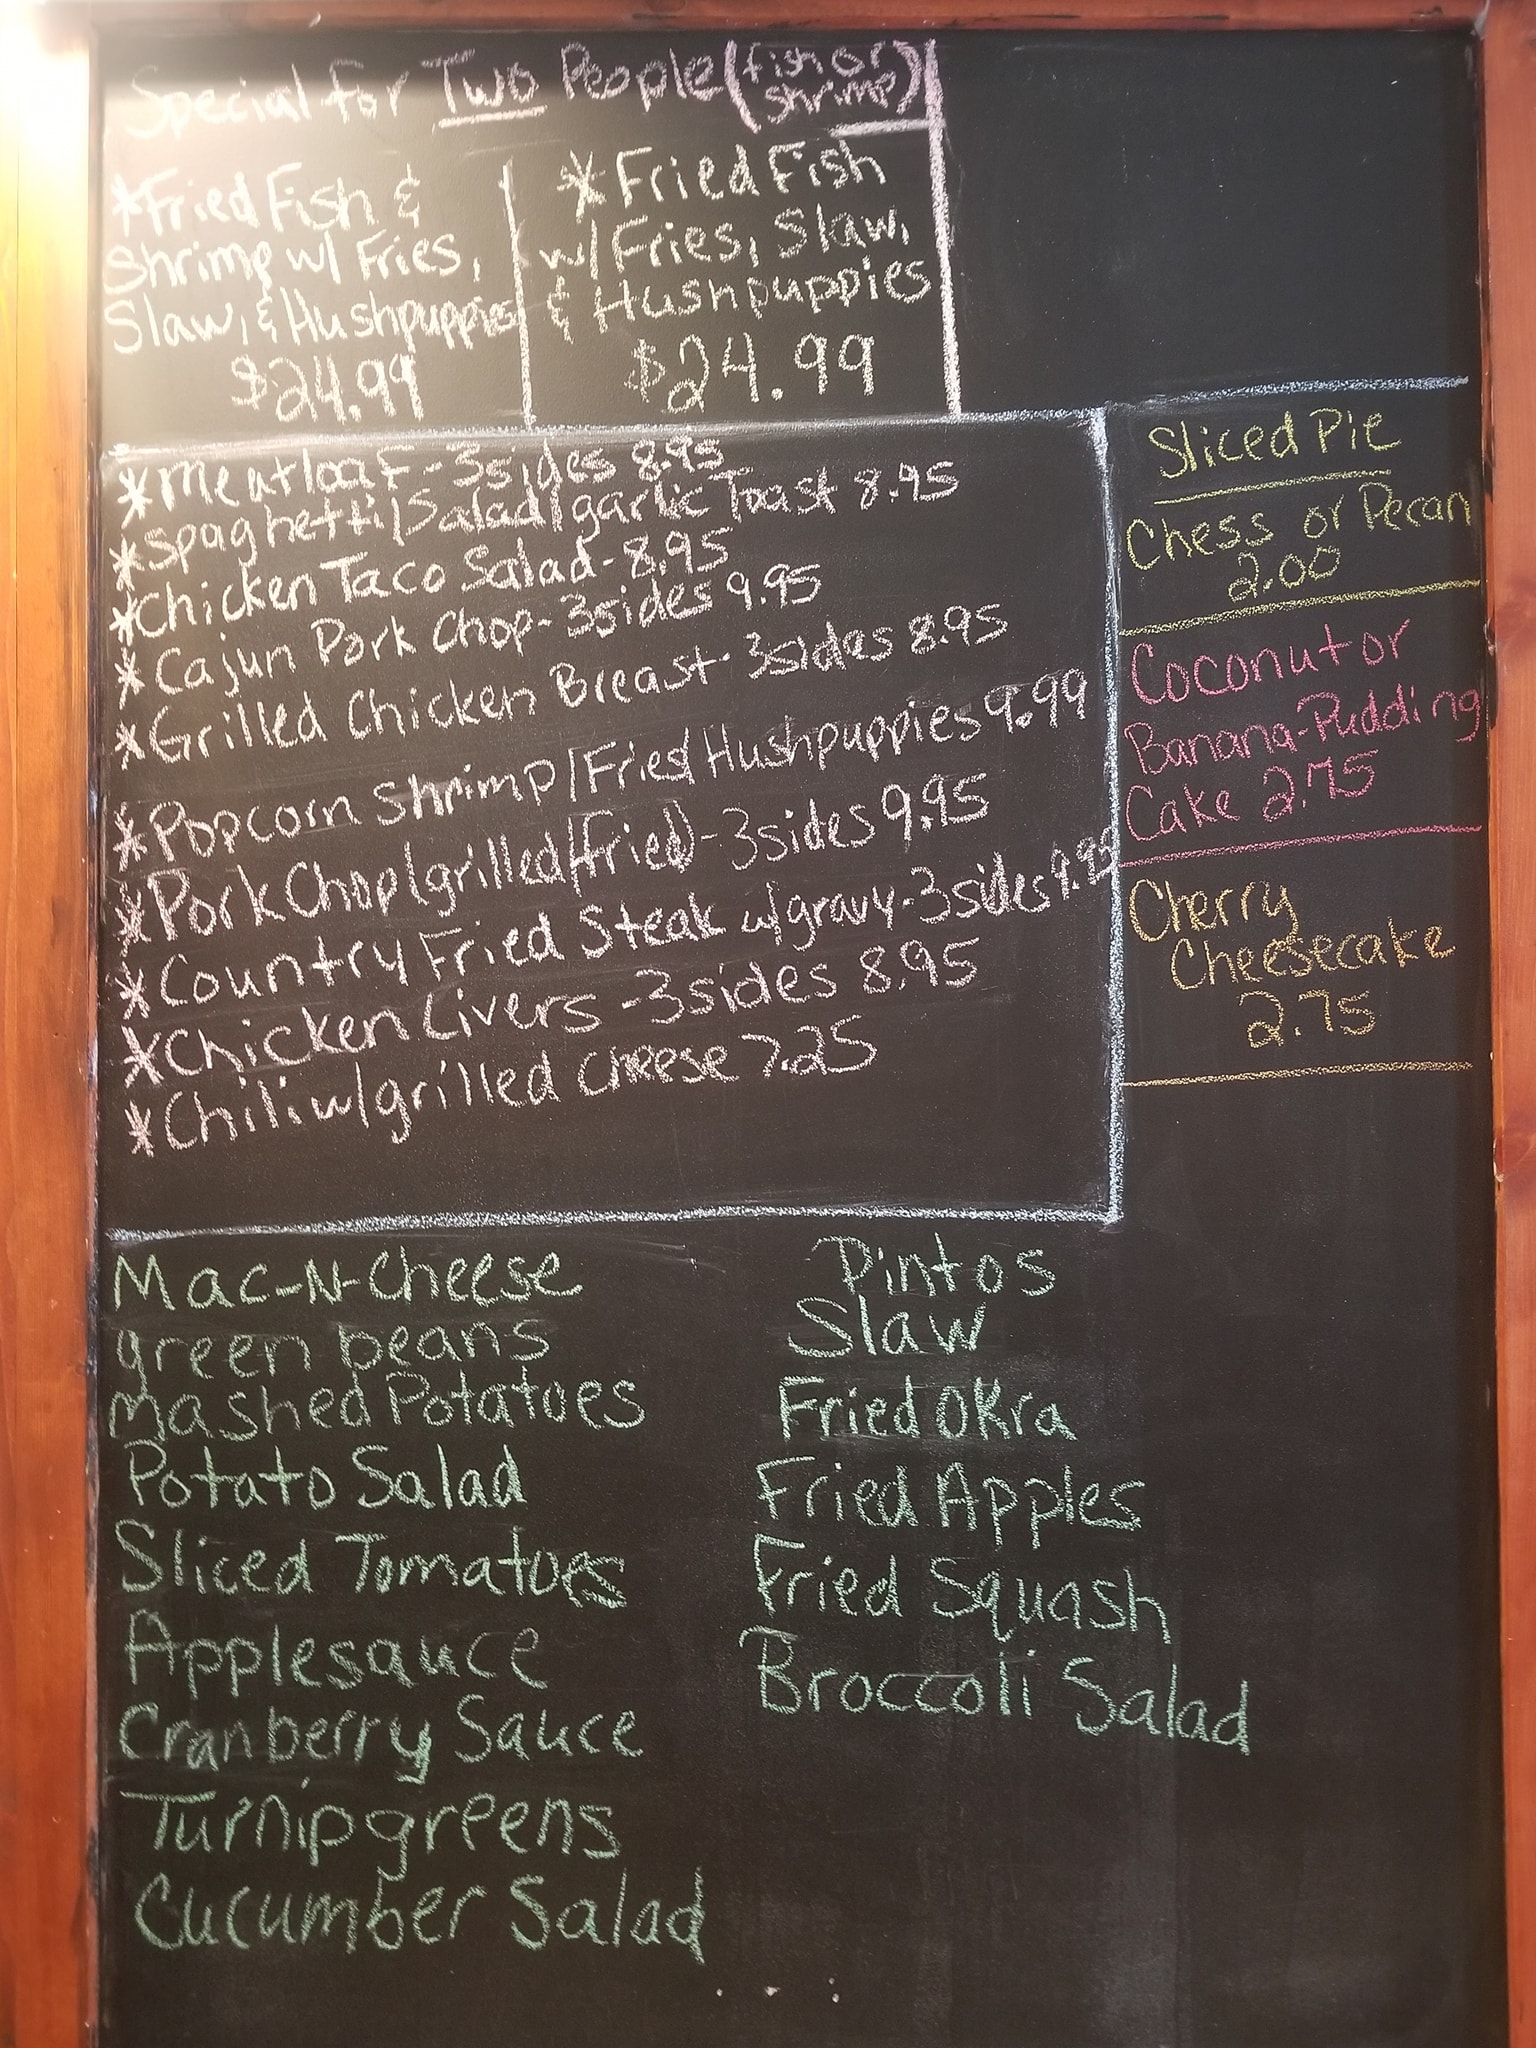 Special For Two People (fish or shrimp)
*Fried Fish &
Shrimp w/ Fries,
Slaw, & Hushpuppies
$24.99
*Fried Fish
w/ Fries, Slaw,
& Hushpuppies
$24.99
*Meatloaf - 3sides 8.95
*Spaghetti/Salad/garlic Toast 8.95
*Chicken Taco Salad - 8.95
*Cajun Pork Chop - 3sides 9.95
*Grilled Chicken Breast - 3sides 8.95
*Popcorn Shrimp/Fries/Hushpuppies 9.99
*Pork Chop(grilled/fried) - 3sides 9.95
*Country Fried Steak w/gravy - 3sides 9.95
*Chicken Livers - 3sides 8.95
*Chili w/grilled Cheese 7.25
Sliced Pie
Chess or Pecan
2.00
Coconut or
Banana-Pudding
Cake 2.75
Cherry
Cheesecake
2.75
Mac-N-Cheese
green beans
Mashed Potatoes
Potato Salad
Sliced Tomatoes
Applesauce
Cranberry Sauce
Turnip greens
Cucumber Salad
Pintos
Slaw
Fried Okra
Fried Apples
Fried Squash
Broccoli Salad